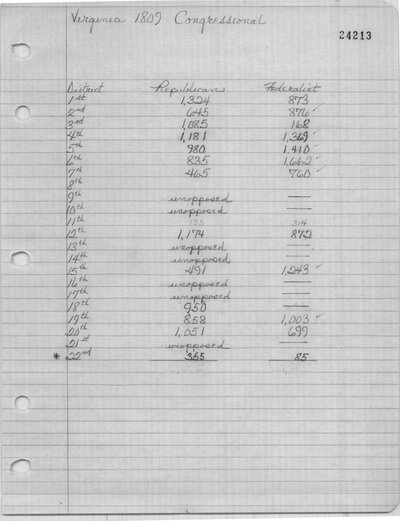 Virginia 1809 Congressional
24213
District Republican Federalist
1st 1,324 873
2nd 645 876 ✓
3rd 1,085 168
4th 1,181 1,369 ✓
5th 980 1,410 ✓
6th 835 1,662 ✓
7th 465 760 ✓
8th
9th unopposed —
10th unopposed —
11th 155 314
12th 1,174 872
13th unopposed —
14th unopposed —
15th 491 1,243 ✓
16th unopposed —
17th unopposed —
18th 950
19th 858 1,003 ✓
20th 1,051 699
21st unopposed —
* 22nd 355 85